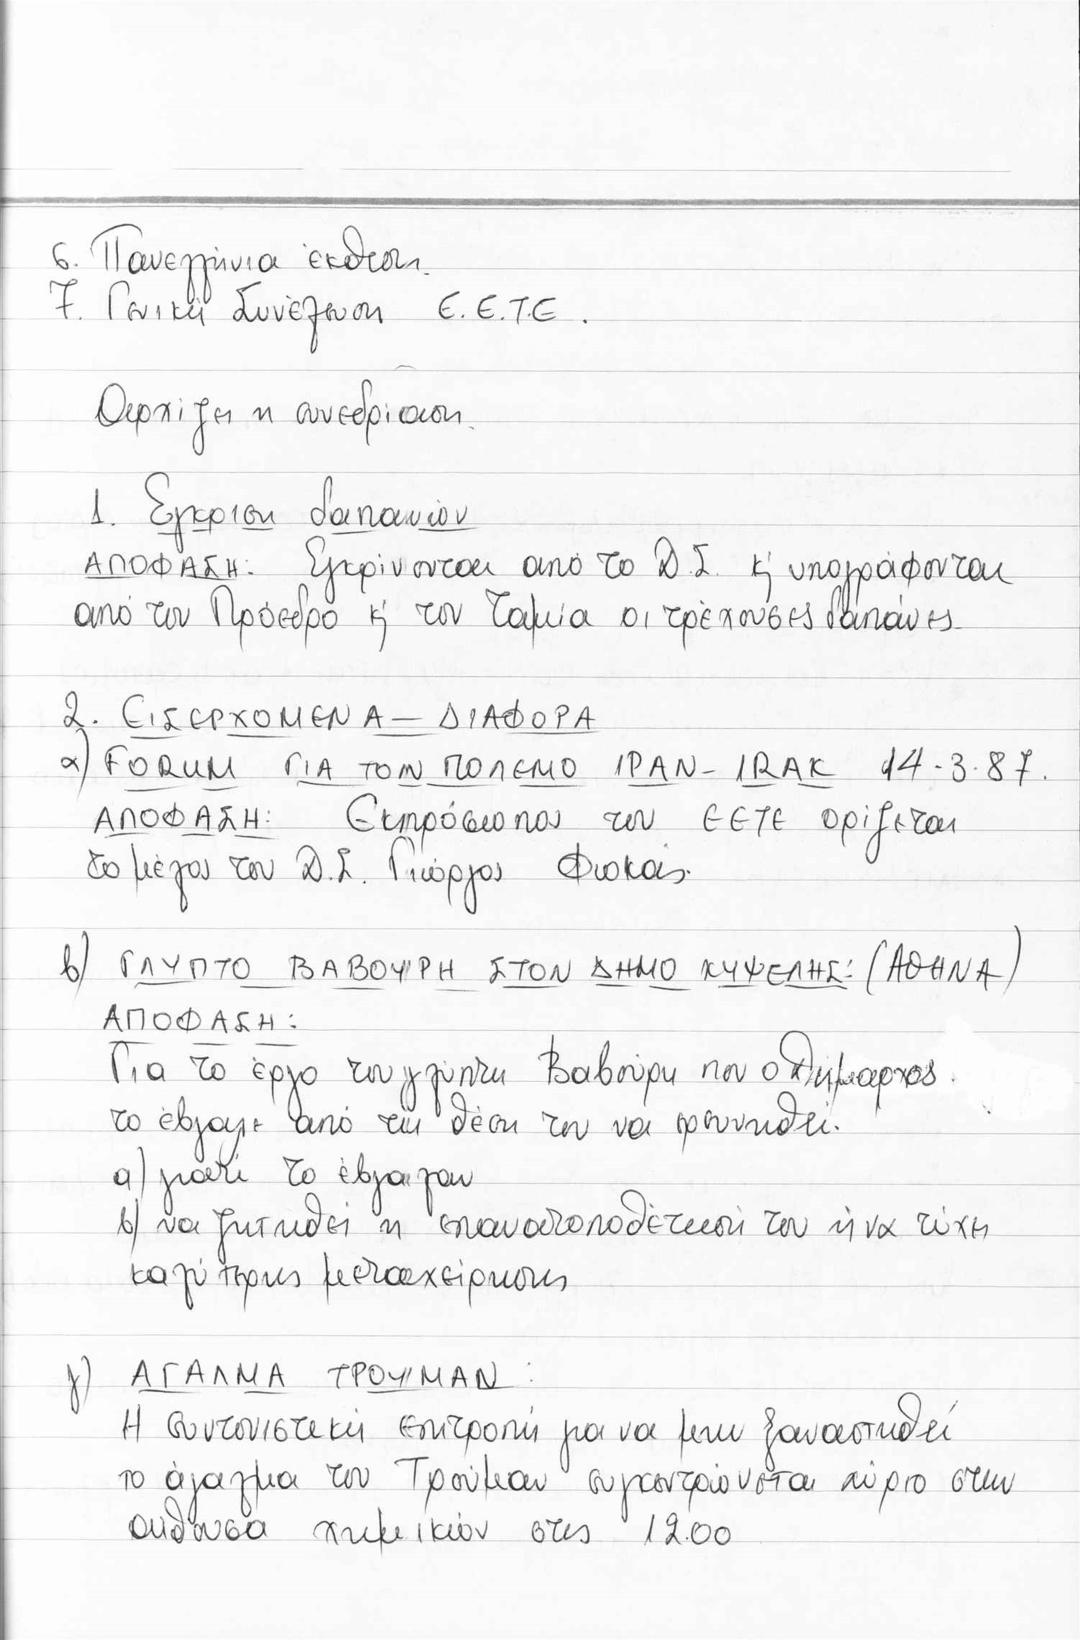 6. Πανελλήνια έκθεση.
7. Γενική Συνέλευση Ε.Ε.Τ.Ε.
Αρχίζει η συνεδρίαση.
1. Έγκριση δαπανών
ΑΠΟΦΑΣΗ: Εγκρίνονται από το Δ.Σ. κ' υπογράφονται
από τον Πρόεδρο κ' τον Ταμία οι τρέχουσες δαπάνες.
2. ΕΙΣΕΡΧΟΜΕΝΑ – ΔΙΑΦΟΡΑ
α) FORUM ΓΙΑ ΤΟΝ ΠΟΛΕΜΟ ΙΡΑΝ – ΙRΑΚ 14-3-87.
ΑΠΟΦΑΣΗ: Εκπρόσωπος του ΕΕΤΕ ορίζεται
το μέλος του Δ.Σ. Γιώργος Φωκάς.
β) ΓΛΥΠΤΟ ΒΑΒΟΥΡΗ ΣΤΟΝ ΔΗΜΟ ΚΥΨΕΛΗΣ: (ΑΘΗΝΑ)
ΑΠΟΦΑΣΗ:
Για το έργο του γλύπτη Βαβούρη που ο Δήμαρχος
το έβγαλε από την θέση του να ερευνηθεί.
α) γιατί το έβγαλαν
β) να ζητηθεί η επανατοποθέτησή του ή να τύχη
καλύτερης μεταχείρησης
γ) ΑΓΑΛΜΑ ΤΡΟΥΜΑΝ:
Η συντονιστική επιτροπή για να μην ξαναστηθεί
το άγαλμα του Τρούμαν συγκεντρώνεται αύριο στην
αίθουσα χημικών στις 12.00